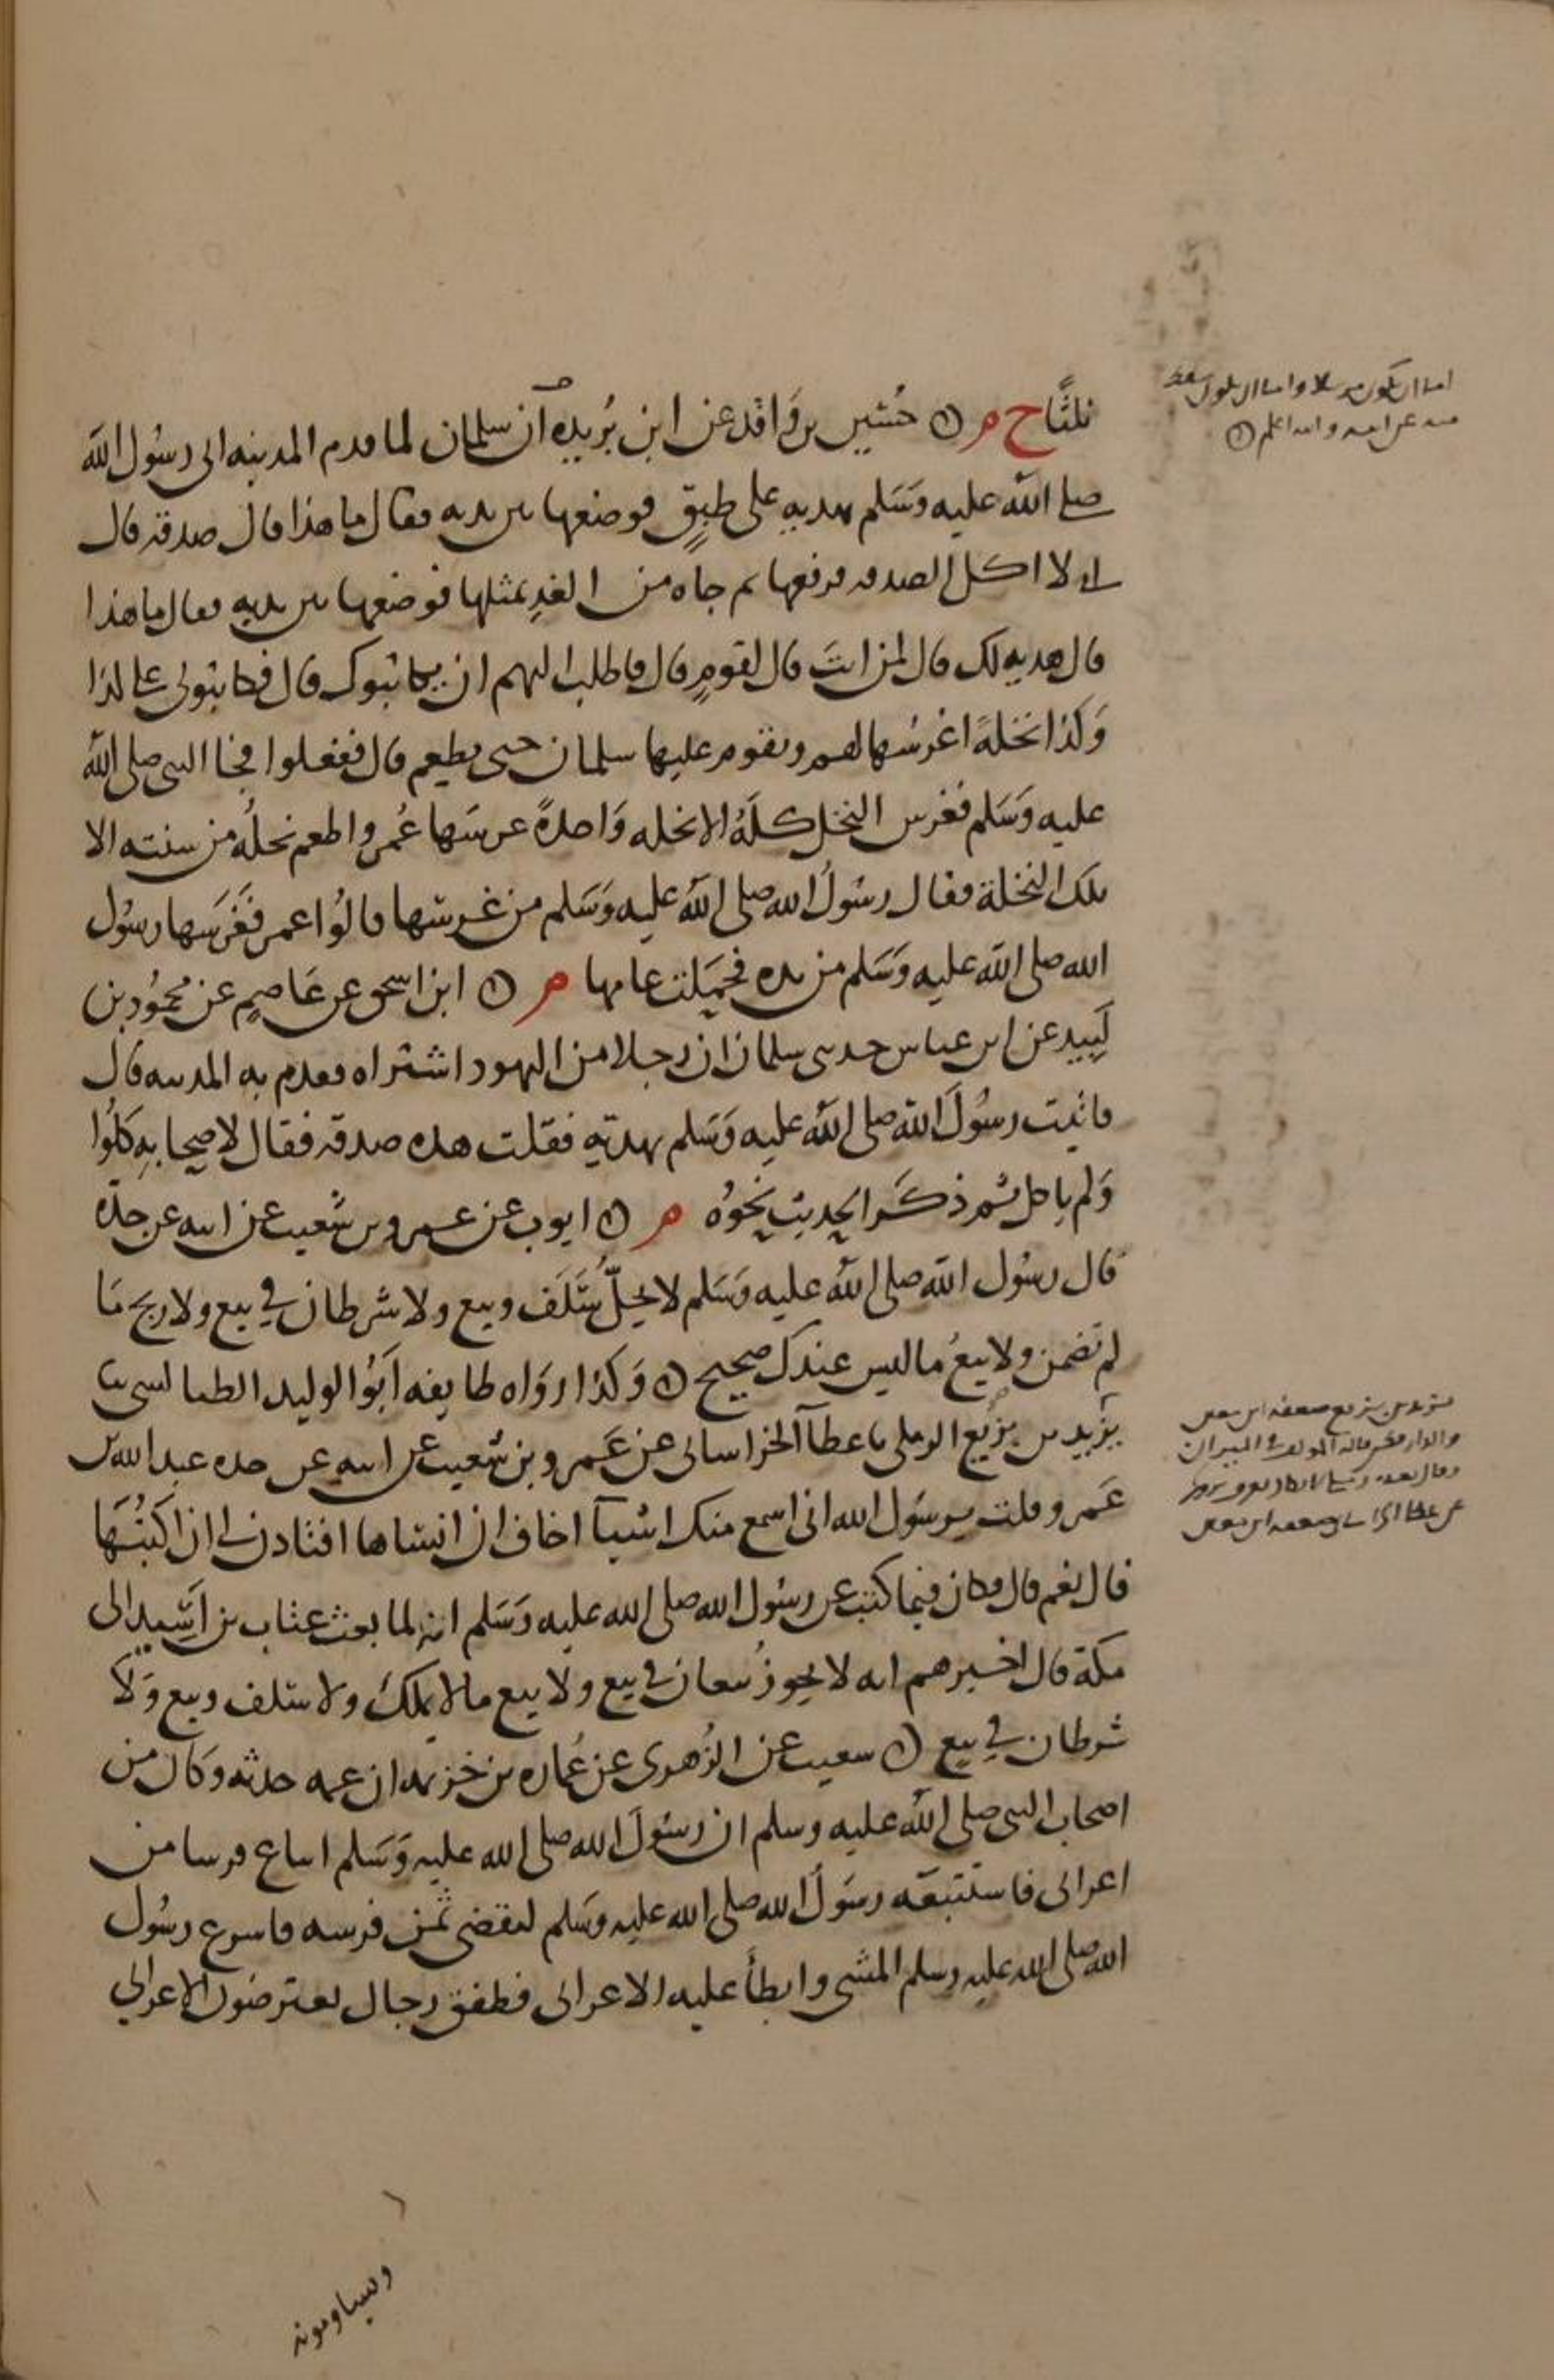 فلتاح م حسين بن واقد عن ابن بريده ان سلمان لما قدم المدينه الى رسول الله
صلى الله عليه وسلم بهديه على طبق فوضعها بين يديه فقال ما هذا قال صدقه قال
اني لا اكل الصدقه فرفعها ثم جاه من الغد بمثلها فوضعها بين يديه فقال ما هذا
قال هديه لك قال لمن انت قال لقوم قال فاطلب اليهم ان يكاتبوك قال فكاتبوني على كذا
وكذا نخلة اغرسها لهم ويقوم عليها سلمان حتى يطعم قال ففعلوا فجا النبي صلى الله
عليه وسلم فغرس النخل كله الا نخله واحدة غرسها عمر واطعم نخله من سنته الا
تلك النخلة فقال رسول الله صلى الله عليه وسلم من غرسها قالوا عمر فغرسها رسول
الله صلى الله عليه وسلم من يده فحملت عامها م ابن اسحق عن عاصم عن محمود بن
لبيد عن ابن عباس حدثني سلمان ان رجلا من اليهود اشتراه فقدم به المدينه قال
فاتيت رسول الله صلى الله عليه وسلم بهدية فقلت هذه صدقه فقال لاصحابه كلوا
ولم ياكل ثم ذكر الحديث نحوه م ايوب عن عمرو بن شعيب عن ابيه عن جده
قال رسول الله صلى الله عليه وسلم لا يحل سلف وبيع ولا شرطان في بيع ولا ربح ما
لم تضمن ولا بيع ما ليس عندك صحيح وكذا رواه طايفه ابو الوليد الطيالسي نا
يزيد بن بزيع الرملي نا عطا الخراساني عن عمرو بن شعيب عن ابيه عن جده عبد الله بن
عمرو قلت يرسول الله اني اسمع منك اشيا اخاف ان انساها افتاذن لي ان اكتبها
قال نعم قال فكان فيما كتب عن رسول الله صلى الله عليه وسلم انه لما بعث عتاب بن اسيد الى
مكة قال اخبرهم انه لا يجوز بيعان في بيع ولا بيع ما لا يملك ولا سلف وبيع ولا
شرطان في بيع شعيب عن الزهري عن عماره بن خزيمه ان عمه حدثه وكان من
اصحاب النبي صلى الله عليه وسلم ان رسول الله صلى الله عليه وسلم ابتاع فرسا من
اعرابي فاستتبعه رسول الله صلى الله عليه وسلم ليقضي ثمن فرسه فاسرع رسول
الله صلى الله عليه وسلم المشي وابطأ عليه الاعرابي فطفق رجال يعترضون الاعرابي
اما ان يكون مرسلا واما ان يكون سقط
منه عن ابيه والله اعلم
يزيد بن بزيع ضعفه ابن معين
والدارقطني قاله المولف في الميزان